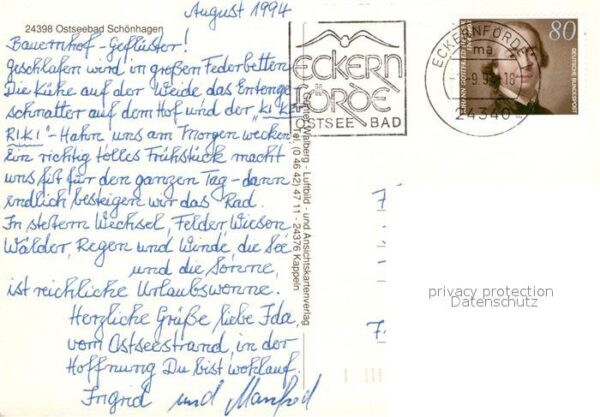 August 1994
24398 Ostseebad Schönhagen
Bauernhof-Geflüster!
geschlafen wird in großen Federbetten
Die Kühe auf der Weide das Entenge
schnatter auf dem Hof und der "KIKE
RIKI"-Hahn uns am Morgen wecken.
Ein richtig tolles Frühstück macht
uns fit für den ganzen Tag - dann
endlich besteigen wir das Rad.
In stetem Wechsel, Felder, Wiesen
Wälder, Regen und Winde, die See
und die Sonne,
ist reichliche Urlaubswonne.
Herzliche Grüße liebe Ida,
vom Ostseestrand, in der
Hoffnung Du bist wohlauf.
Ingrid und Manfred
ECKERN
FÖRDE
OSTSEE BAD
ECKERNFÖRDE
ma
18
24340
80
DEUTSCHE BUNDESPOST
Luftbild- und Ansichtskartenverlag
Tel. (0 46 42) 47 11 - 24376 Kappeln
privacy protection
Datenschutz